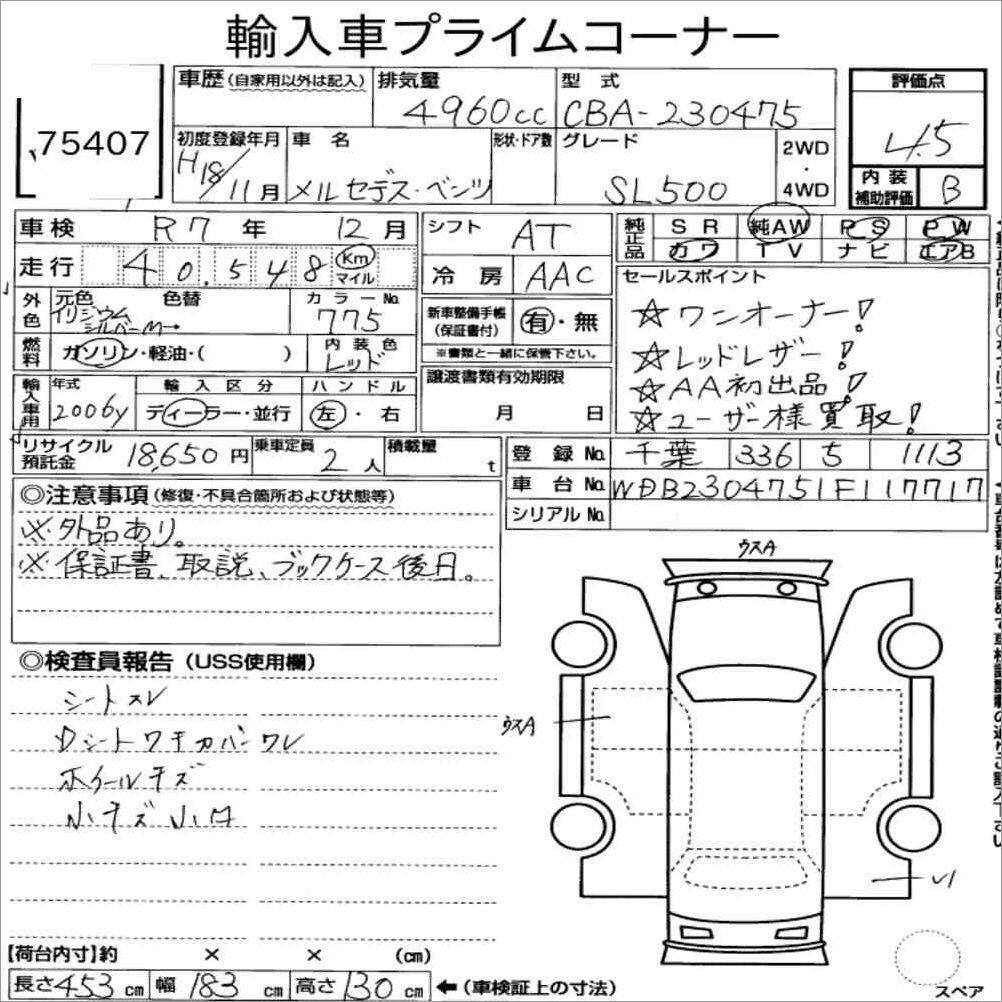 輸入車プライムコーナー
75407
車歴(自家用以外は記入)
排気量
4960cc
型式
CBA-230475
評価点
4.5
内装補助評価
B
初度登録年月
H18/11月
車名
メルセデス・ベンツ
形状・ドア数
グレード
SL500
2WD
・
4WD
車検 R7年 12月
走行 40,548 Km マイル
シフト AT
冷房 AAC
純正品 SR 純AW PS PW
カワ TV ナビ エアB
セールスポイント
☆ワンオーナー!
☆レッドレザー!
☆AA初出品!
☆ユーザー様買取!
外色
元色 色替
イリジウム
シルバーM
カラーNo.
775
新車整備手帳
(保証書付)
有・無
※書類と一緒に保管下さい。
燃料 ガソリン・軽油・( )
内装色
レッド
譲渡書類有効期限
月 日
輸入車用
年式
2006y
輸入区分
ディーラー・並行
ハンドル
左・右
リサイクル預託金 18,650円
乗車定員 2人
積載量 t
登録No. 千葉 336 5 1113
車台No. WDB2304751F117717
シリアルNo.
◎注意事項(修復・不具合箇所および状態等)
※外品あり。
※保証書、取説、ブックケース後日。
◎検査員報告(USS使用欄)
シートスレ
Dシートワキカバーワレ
ホイールキズ
小キズ小凹
ウスA
ウスA
スペア
【荷台内寸】約 × × (cm)
長さ453cm 幅183cm 高さ130cm ←(車検証上の寸法)